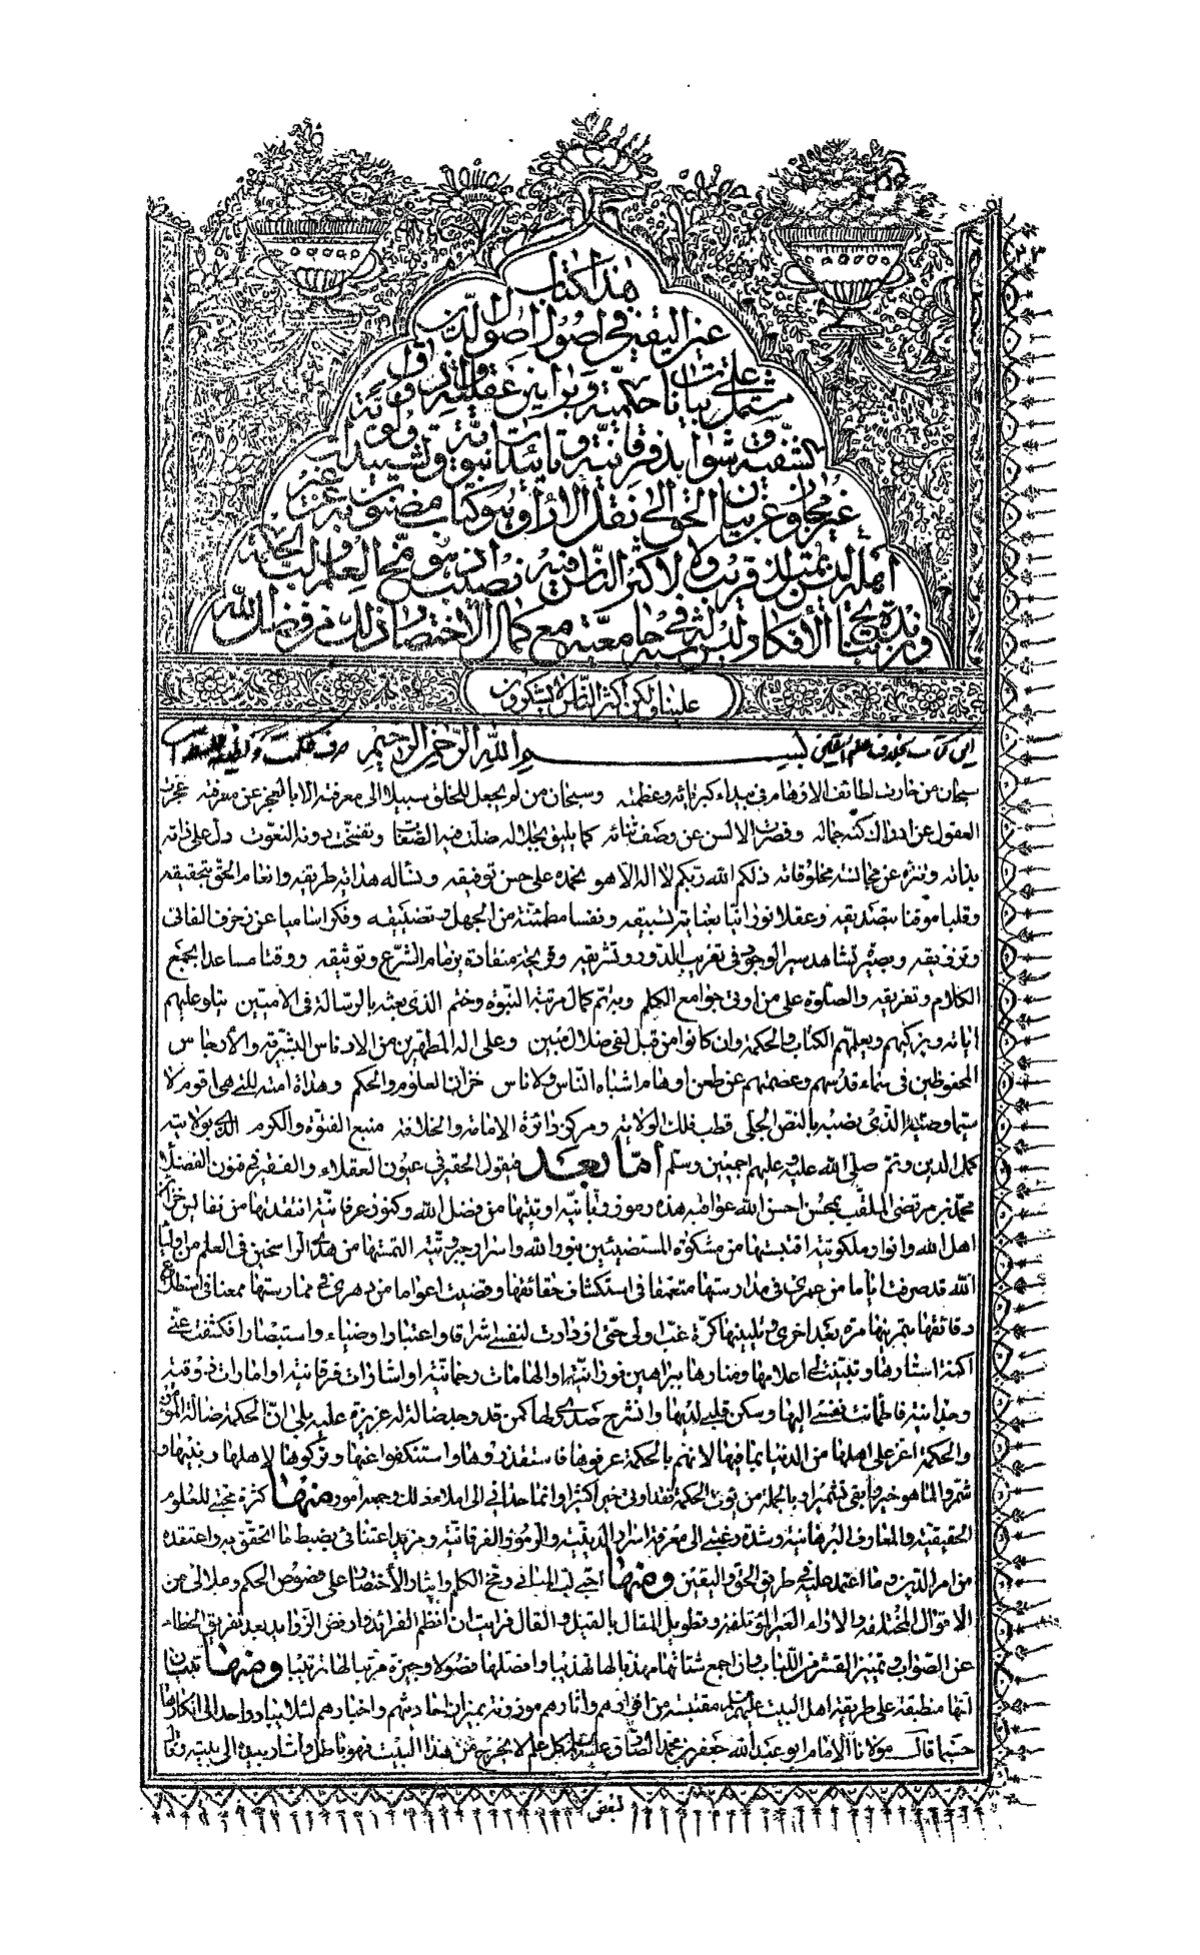 هذا كتاب
عين اليقين في اصول اصول الدين
مشتمل على بيانات حكمية وبراهين عقلية واذواق
كشفية وشواهد فرقانية وتاييدات نبوية وتشييدات ولوية
غير مجاوز عن بيان الحق الى نقل الاراء وهو كتاب مضنون به عن غير
اهله لن يتمثله قريب ولا لاكثر الناس فيه نصيب اذ هو مخ العلم ولب الحكمة
وزبدة نتايج الافكار ليس لمثله في جامعيته مع كمال الاختصار ذلك من فضل الله
علينا ولكن اكثر الناس لا يشكرون
بسم الله الرحمن الرحيم
سبحان من حارت لطائف الاوهام في بيداء كبريائه وعظمته وسبحان من لم يجعل للخلق سبيلا الى معرفته الا بالعجز عن معرفته عجزت
العقول عن ادراك كنه جماله وقصرت الالسن عن وصف ثنائه كما يليق بجلاله ضلت فيه الصفات وتفسخت دونه النعوت دل على ذاته
بذاته وتنزه عن مجانسة مخلوقاته ذلكم الله ربكم لا اله الا هو نحمده على حسن توفيقه ونساله هداية طريقه والهام الحق بتحقيقه
وقلبا موقنا بتصديقه وعقلا نورانيا بعناية تسبيقه ونفسا مطمئنة من الجهل وتضييقه وفكرا ساميا عن زخرف الفاني
وتزويقه وبصيرة تشاهد سر الوجود في تغريب الدور وتشريقه وقريحة منقادة بزمام الشرع وتوثيقه ووقتا مساعدا لجمع
الكلام وتفريقه والصلوة على من اوتي جوامع الكلم وبه تم كمال مرتبة النبوة وختم الذي بعثه بالرسالة في الاميين يتلو عليهم
اياته ويزكيهم ويعلمهم الكتاب والحكمة وان كانوا من قبل لفي ضلال مبين وعلى اله المطهرين من الادناس البشرية والارجاس
المحفوظين في سماء قدسهم وعصمتهم عن طعن اوهام اشباه الناس ولا ناس خزان العلوم والحكم وهداة امته للتي هي اقوم لا
سيما وصيه الذي نصبه بالنص الجلي قطب فلك الولاية ومركز دائرة الامامة والخلافة منبع الفتوة والكرم الذي بولايته
كمل الدين وتم صلى الله عليه وعليهم اجمعين وسلم اما بعد فيقول الحقير في عيون العقلاء والفقير في فنون الفضلاء
محمد بن مرتضى الملقب بمحسن احسن الله عواقبه هذه رموز ربانية اوتيتها من فضل الله وكنوز عرفانية انتقدتها من نفايس خزائن
اهل الله وانوار ملكوتية اقتبستها من مشكوة المستضيئين بنور الله واسرار جبروتية التمستها من هدى الراسخين في العلم من اولياء
الله قد صرفت اياما من عمري في مدارستها متعمقا في استكشاف حقائقها وقضيت اعواما من دهري في ممارستها ممعنا في استطلاع
دقائقها بتمرينها مرة بعد اخرى وتليينها كرة غب اولى حتى ازدادت لنفسي اشراقا واعتبارا وضياء واستبصارا فكشفت عني
اكنة استارها وتبينت لي اعلامها ومنارها ببراهين نورانية والهامات رحمانية واشارات فرقانية وامارات ذوقية
وجدانية فاطمانت نفسي اليها وسكن قلبي لديها وانشرح صدري لها كمن قد وجد ضالة له عزيزة عليه بلى ان الحكمة ضالة المؤمن
والحكمة اعز على اهلها من الدنيا بما فيها لانهم بالحكمة عرفوها فاستقذروها واستنكفوا عنها وتركوها لاهلها وبنيها و
شمروا لما هو خير وابقى تشميرا وبالجملة من يؤت الحكمة فقد اوتي خيرا كثيرا وانما حداني الى املاء ذلك وجمعه امور منها كثرة محبتي للعلوم
الحقيقية والمعارف البرهانية وشدة رغبتي الى معرفة اسرار الدينية والرموز الفرقانية ومزيد اعتنائي بضبط ما اتحقق به واعتقده
من امر الدين وما اعتمد عليه في طريق الحق واليقين ومنها حبي لب المعاني ومخ الكلم وايثار الاختصار على فصوص الحكم وملالي عن
الاقوال المختلفة والاراء الغير المؤتلفة وتطويل المقال بالقيل والقال فرايت ان انظم الفرائد وارفض الزوايد بعد تفريق الخطاء
عن الصواب وتمييز القشر من اللباب وان اجمع شتاتها مهذبا لها تهذيبا وافصلها فصولا وجيزة مرتبا لها ترتيبا ومنها تبيان
انها منطبقة على طريقة اهل البيت عليهم السلام مقتبسة من انوارهم واثارهم موزونة بميزان احاديثهم واخبارهم لئلا يبادر واحد الى انكارها
حيثما قال مولانا الامام ابو عبد الله جعفر بن محمد الصادق عليه السلام كل علم لا يخرج من هذا البيت فهو باطل واشار بيده الى بيته وقال
لبعض